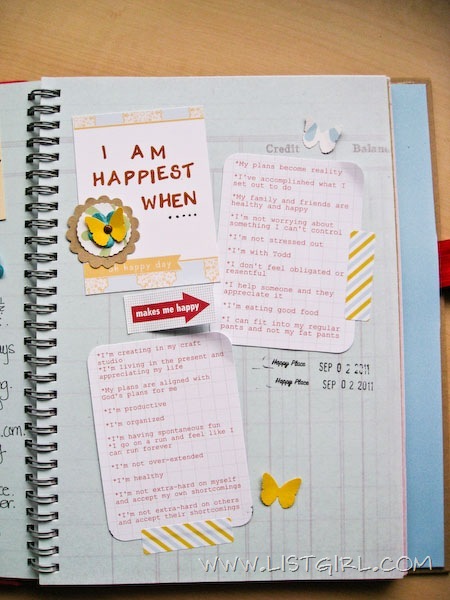 Credit
Balanc
I AM
HAPPIEST
WHEN .....
happy day
*My plans become reality
*I've accomplished what I
set out to do
*My family and friends are
healthy and happy
*I'm not worrying about
something I can't control
*I'm not stressed out
*I'm with Todd
*I don't feel obligated or
resentful
*I help someone and they
appreciate it
*I'm eating good food
*I can fit into my regular
pants and not my fat pants
makes me happy
*I'm creating in my craft
studio
*I'm living in the present and
appreciating my life
*My plans are aligned with
God's plans for me
*I'm productive
*I'm organized
*I'm having spontaneous fun
*I go on a run and feel like I
can run forever
*I'm not over-extended
*I'm healthy
*I'm not extra-hard on myself
and accept my own shortcomings
*I'm not extra-hard on others
and accept their shortcomings
Happy Place SEP 02 2011
Happy Place SEP 02 2011
WWW.LISTGIRL.COM